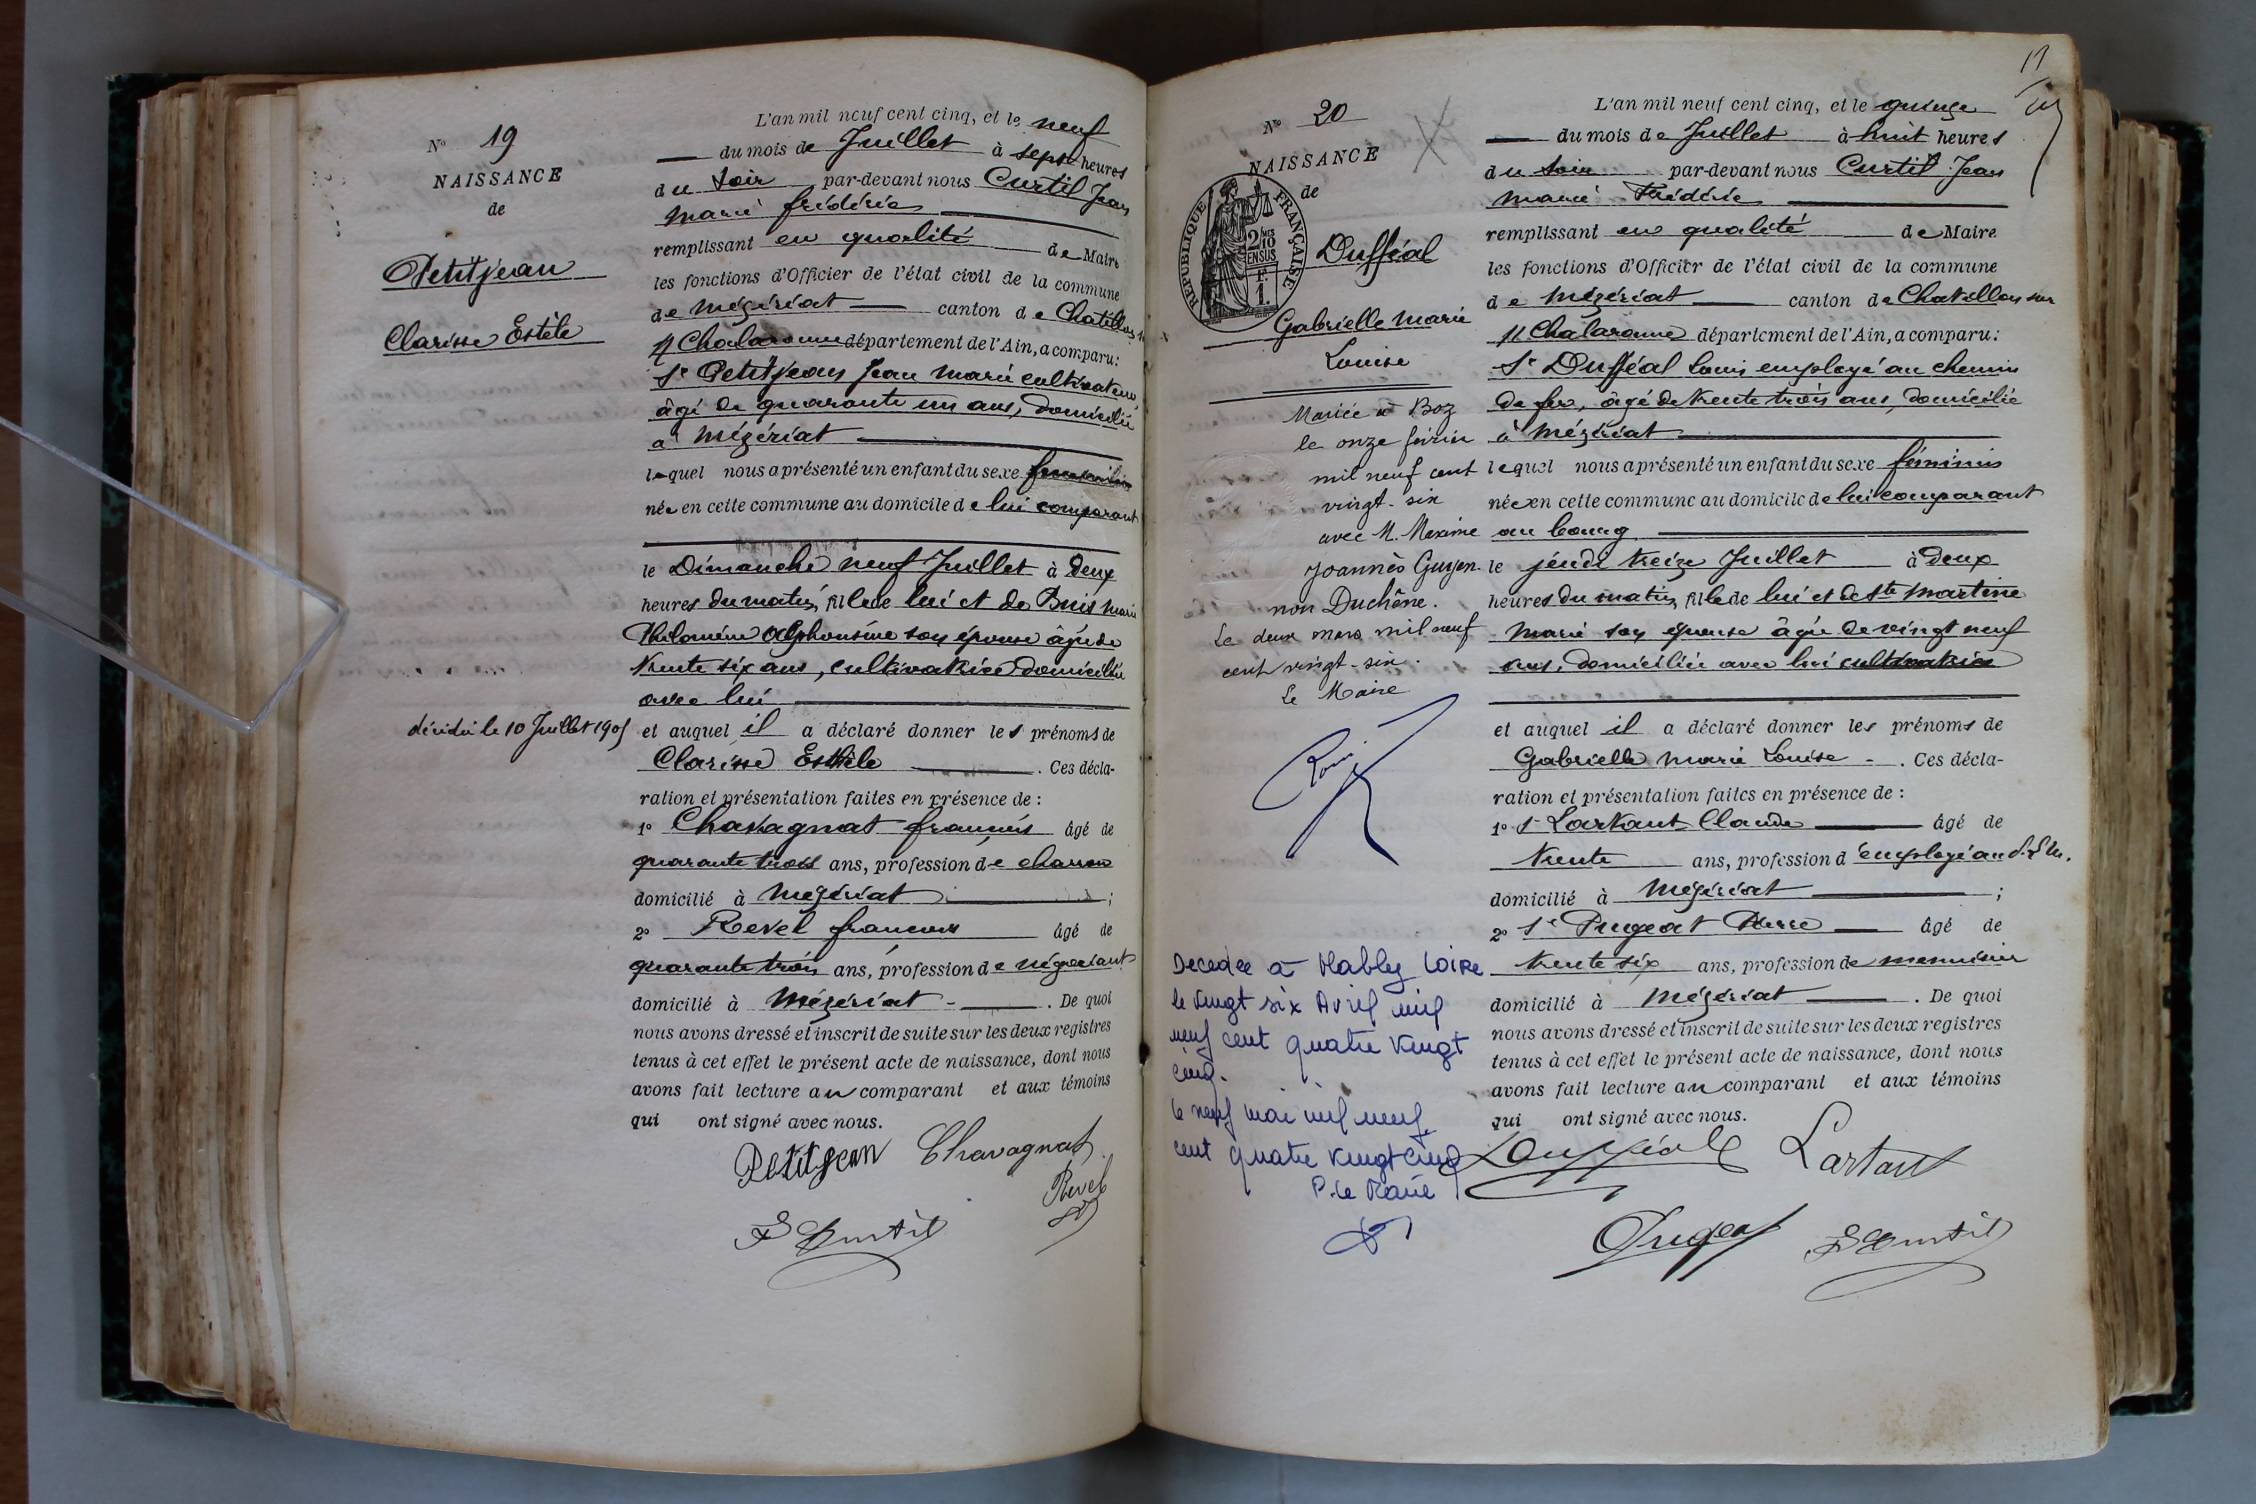 L'an mil neuf cent cinq, et le neuf
N° 19
du mois de Juillet à sept heures
NAISSANCE
du soir par-devant nous Curtil Jean
de
Marie frédéric
remplissant en qualité de Maire
Petitjean
les fonctions d'Officier de l'état civil de la commune
de Mézériat canton de Chatillon s
Clarisse Estèle
/ Chalaronne département de l'Ain, a comparu:
Sr Petitjean Jean Marie cultivateur
âgé de quarante un ans, domicilié
à Mézériat
lequel nous a présenté un enfant du sexe
née en cette commune au domicile de lui comparant
le Dimanche neuf Juillet à deux
heures du matin, fille de lui et de Buis Marie
Philomène Alphonsine son épouse âgée de
trente six ans, cultivatrice domiciliée
avec lui
décédée le 10 Juillet 1905
et auquel il a déclaré donner les prénoms de
Clarisse Esthèle . Ces décla-
ration et présentation faites en présence de :
1° Chavagnat françois âgé de
quarante trois ans, profession de charron
domicilié à Mézériat ;
2° Revel francois âgé de
quarante trois ans, profession de négociant
domicilié à Mézériat - . De quoi
nous avons dressé et inscrit de suite sur les deux registres
tenus à cet effet le présent acte de naissance, dont nous
avons fait lecture au comparant et aux témoins
qui ont signé avec nous.
Petitjean Chavagnat
Revel
F Curtil
11
N° 20
NAISSANCE
de
RÉPUBLIQUE FRANÇAISE
2/10 MES
EN SUS
1 F.
Dufféal
Gabrielle Marie
Louise
Mariée à Boz
le onze février
mil neuf cent
vingt-six
avec M. Maxime
Joannès Guyen-
non Duchêne.
Le deux mars mil neuf
cent vingt-six.
Le Maire
Décédée à Mably Loire
le vingt six Avril mil
neuf cent quatre vingt
cinq.
le neuf mai mil neuf
cent quatre vingt cinq
P. le Maire
L'an mil neuf cent cinq, et le quinze
du mois de Juillet à huit heures
du soir par-devant nous Curtil Jean
Marie Frédéric
remplissant en qualité de Maire
les fonctions d'Officier de l'état civil de la commune
de Mézériat canton de Chatillon sur
// Chalaronne département de l'Ain, a comparu:
Sr Dufféal Louis employé au chemin
de fer, âgé de trente trois ans, domicilié
à Mézériat
lequel nous a présenté un enfant du sexe féminin
née en cette commune au domicile de lui comparant
au bourg
le jeudi treize Juillet à deux
heures du matin, fille de lui et de Ste Martine
Marie son épouse âgée de vingt neuf
ans, domiciliée avec lui cultivatrice
et auquel il a déclaré donner les prénoms de
Gabrielle Marie Louise - . Ces décla-
ration et présentation faites en présence de :
1° Sr Lartaut Claude âgé de
trente ans, profession d'employé au P.L.M.
domicilié à Mézériat ;
2° Sr Pugeat Pierre âgé de
trente six ans, profession de menuisier
domicilié à Mézériat . De quoi
nous avons dressé et inscrit de suite sur les deux registres
tenus à cet effet le présent acte de naissance, dont nous
avons fait lecture au comparant et aux témoins
qui ont signé avec nous.
Dufféal Lartaut
Pugeat F Curtil